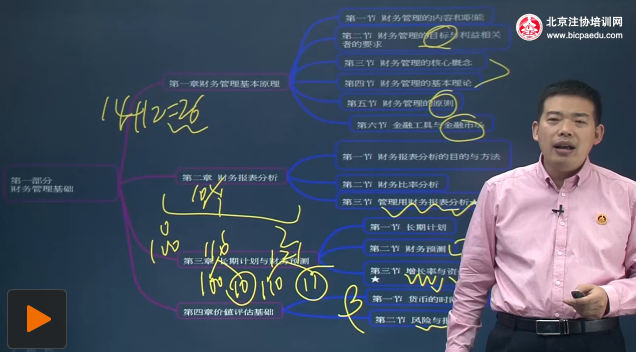 北京注协培训网
www.bicpaedu.com
第一节 财务管理的内容和职能
第二节 财务管理的目标与利益相关
者的要求
第三节 财务管理的核心概念
第一章财务管理基本原理
第四节 财务管理的基本理论
第五节 财务管理的原则
14+12=26
第六节 金融工具与金融市场
第一部分
财务管理基础
第一节 财务报表分析的目的与方法
第二章 财务报表分析
第二节 财务比率分析
10%
第三节 管理用财务报表分析★
第一节 长期计划
0
100
110
121
第二节 财务预测
第三章 长期计划与财务预测
第三节 增长率与资
★
100
10
110
11
第一节 货币的时间
第四章价值评估基础
β
第二节 风险与报